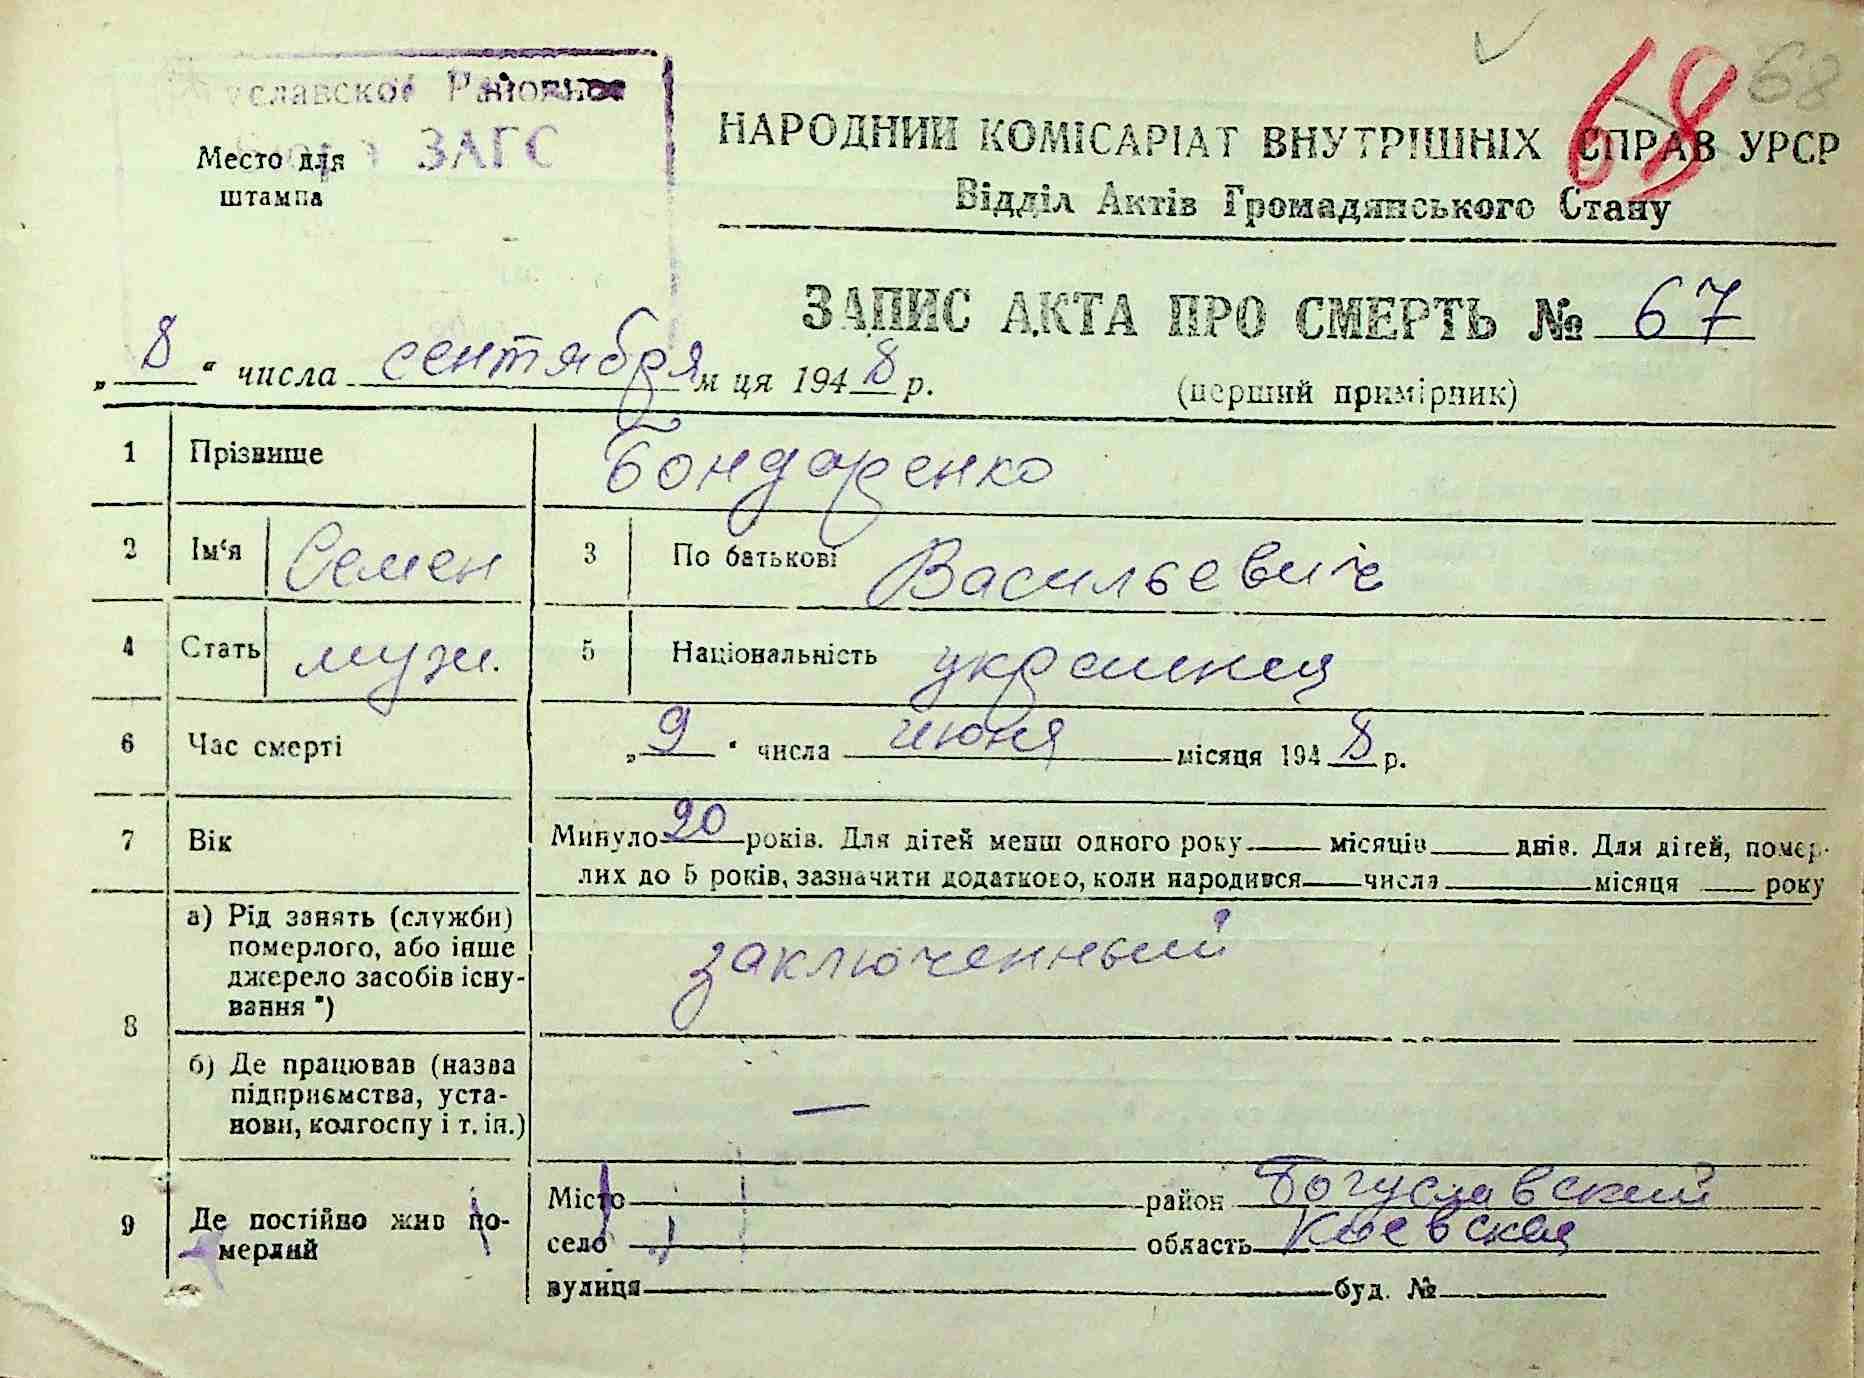 68
68
Районное
ЗАГС
Место для
штампа
НАРОДНИЙ КОМІСАРІАТ ВНУТРІШНІХ СПРАВ УРСР
Відділ Актів Громадянського Стану
ЗАПИС АКТА ПРО СМЕРТЬ № 67
„8“ числа сентября м ця 1948 р.
(перший примірник)
1 Прізвище Бондаренко
2 Ім‘я Семен 3 По батькові Васильевич
4 Стать муж. 5 Національність украинец
6 Час смерті „9“ числа июня місяця 1948 р.
7 Вік Минуло 20 років. Для дітей менш одного року місяців днів. Для дітей, помер-
лих до 5 років, зазначити додатково, коли народився числа місяця року
8 а) Рід занять (служби)
померлого, або інше
джерело засобів існу-
вання *)
заключенный
б) Де працював (назва
підприємства, уста-
нови, колгоспу і т. ін.)
—
9 Де постійно жив по-
мерлий
Місто район Богуславский
село область Киевская
вулиця буд. №